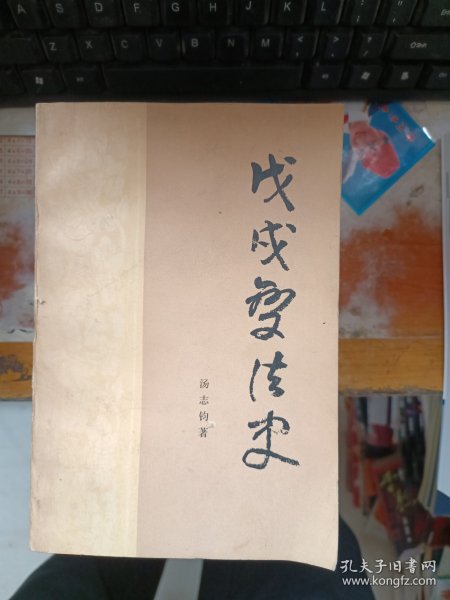 A S D F G H J K L
Z X C V B N M
戊戌变法史
汤志钧著
孔夫子旧书网
www.kongfz.com